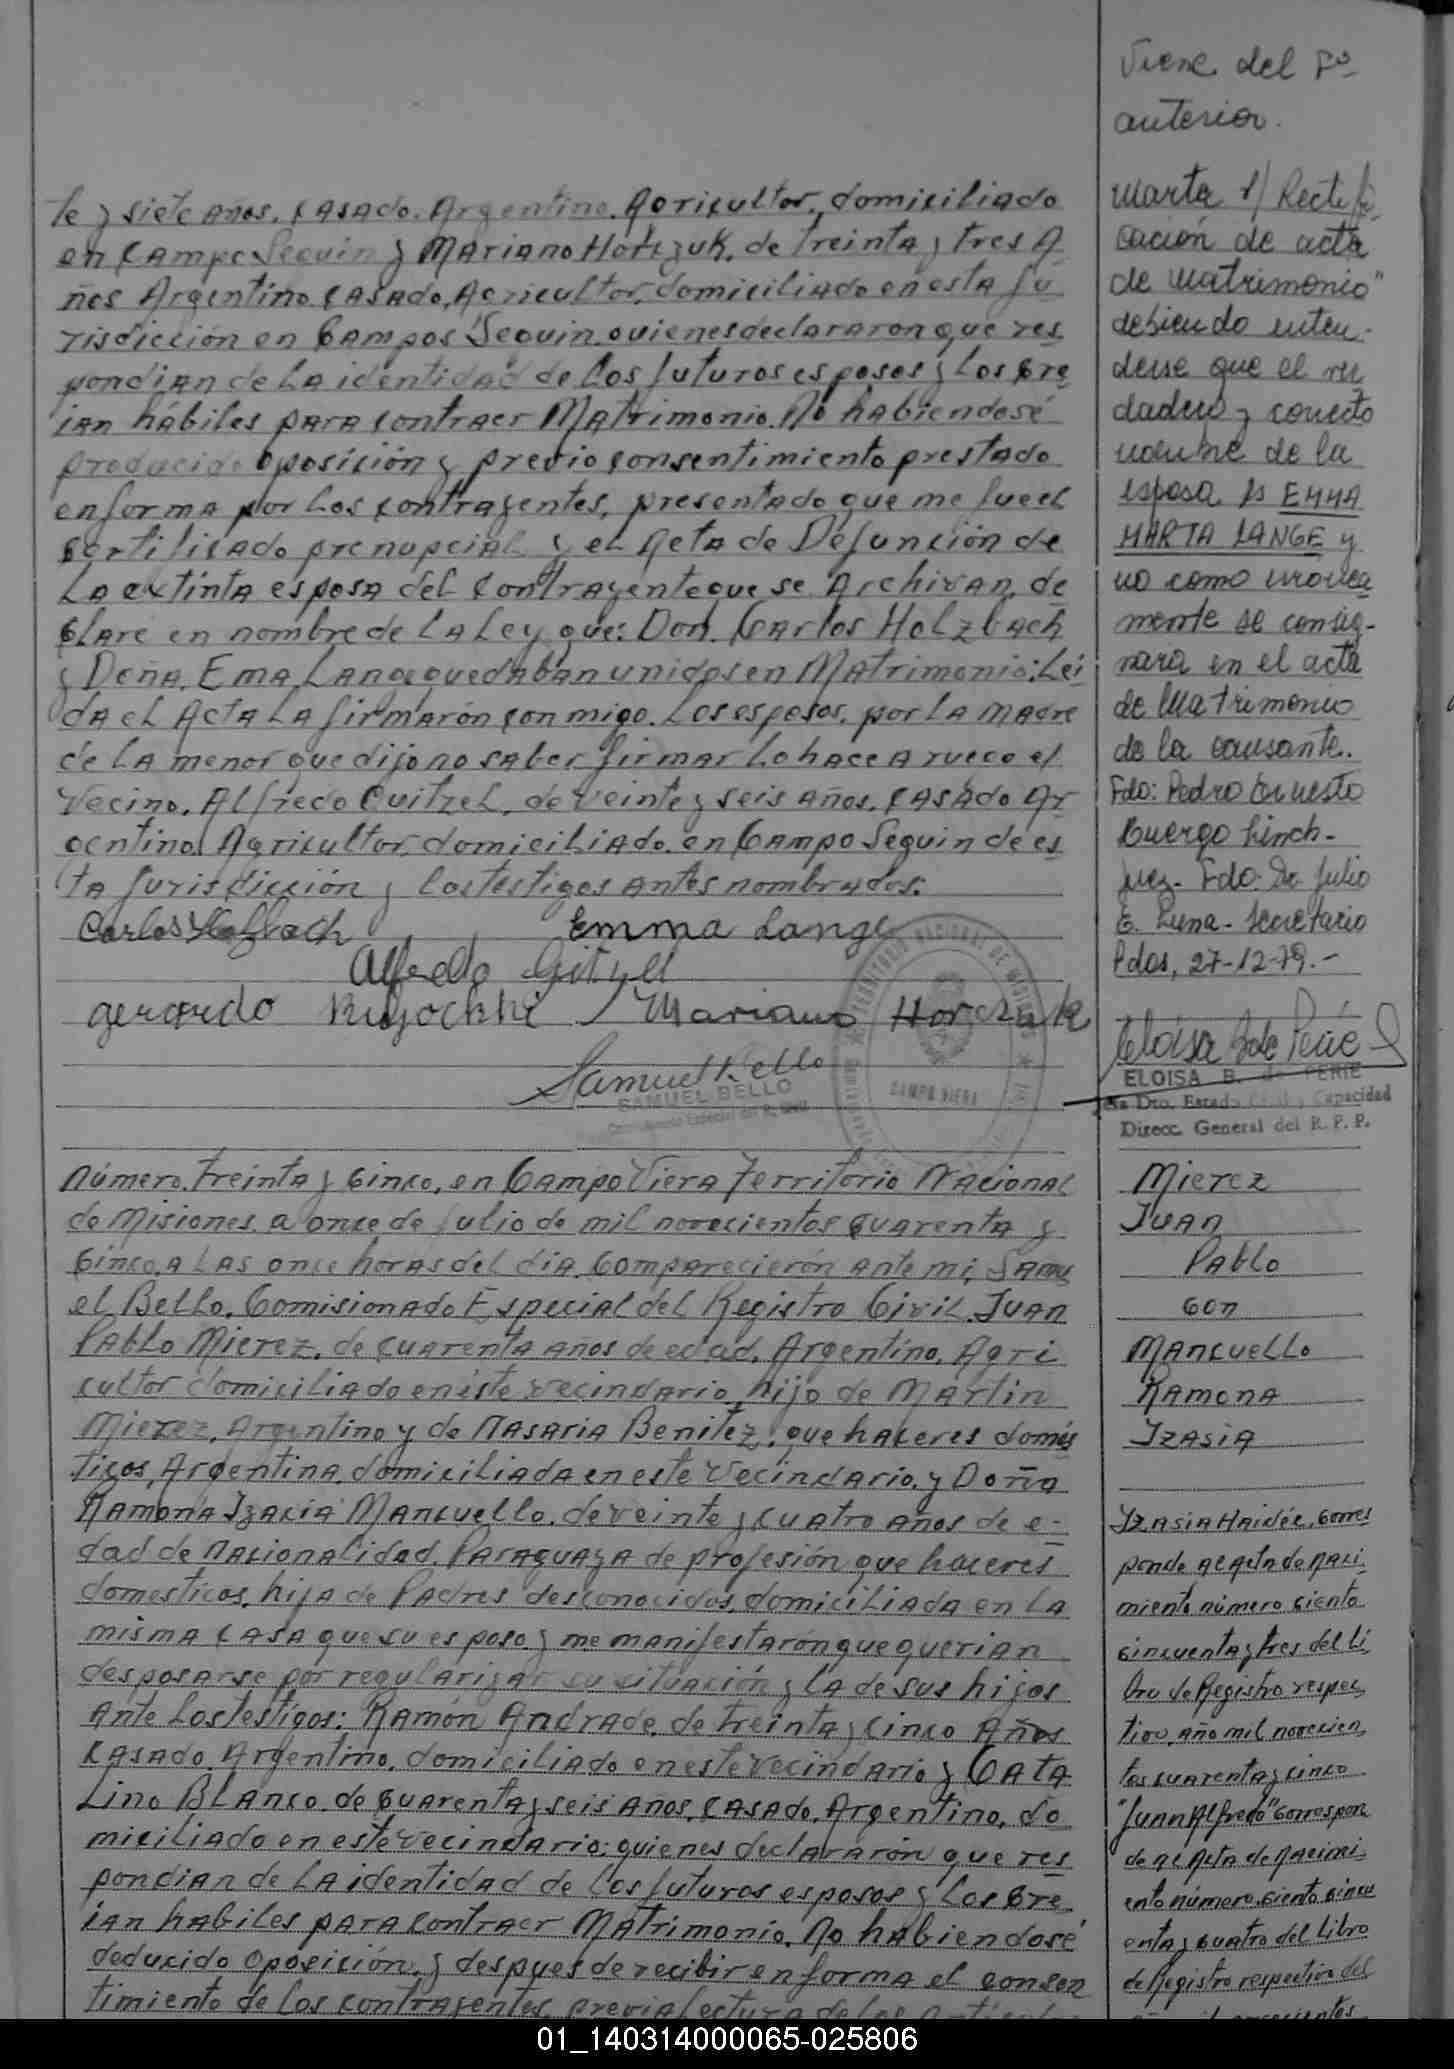 te y siete años, casado, Argentino, Agricultor, domiciliado
en Campo Seguin y Mariano Horczuk, de treinta y tres A
ños Argentino, casado, Agricultor, domiciliado en esta Ju
risdicción en Campos Seguin, quienes declararon que res
pondian de la identidad de los futuros esposos y los cre
ian hábiles para contraer Matrimonio. No habiendosé
producido oposición y previo consentimiento prestado
en forma por los contrayentes, presentado que me fue el
certificado prenupcial y el Acta de Defunción de
la extinta esposa del contrayente que se Archivan, de
claré en nombre de la Ley, que: Don. Carlos Holzbach
y Doña. Ema Lange quedaban unidos en Matrimonio: Leí
da el Acta la firmarón conmigo. Los esposos, por la madre
de la menor que dijo no saber firmar lo hace a ruego el
vecino, Alfredo Guitzel, de veinte y seis años, casado Ar
gentino, Agricultor, domiciliado en Campo Seguin de es
ta Jurisdicción y los testigos antes nombrados:
Carlos Holzbach Emma Lange
Alfredo
gerardo Mariano Horczuk
Samuel Bello
SAMUEL BELLO
TERRITORIO NACIONAL DE MISIONES
CAMPO VIERA
Número, treinta y cinco, en Campo Viera Territorio Nacional
de Misiones a once de Julio de mil novecientos cuarenta y
cinco, a las once horas del dia, comparecierón ante mi, Samu
el Bello, Comisionado Especial del Registro Civil, Juan
Pablo Mierez, de cuarenta años de edad, Argentino, Agri
cultor domiciliado en éste vecindario, hijo de Martin
Mierez, Argentino y de Nasaria Benitez, que haceres domés
ticos, Argentina, domiciliada en este vecindario, y Doña
Ramona Izacia Mancuello, de veinte y cuatro años de e-
dad de nacionalidad, Paraguaya de profesión que haceres
domesticos, hija de Padres desconocidos, domiciliada en la
misma casa que su esposo y me manifestarón que querian
desposarse por regularizar su situación y la de sus hijos
Ante los testigos: Ramón Andrade, de treinta y cinco Años
casado, Argentino, domiciliado en este vecindario y Cata
lino Blanco, de cuarenta y seis años, casado, Argentino, do
miciliado en este vecindario: quienes declararón que res
pondian de la identidad de los futuros esposos y los cre
ian habiles para contraer Matrimonio. No habiendosé
deducido oposición, y despues de recibir en forma el consen
timiento de los contrayentes, previa lectura de los
Viene del Fº
anterior.
Marta s/ Rectifi-
cación de acta
de Matrimonio"
debiendo enten-
derse que el ver
dadero y correcto
nombre de la
esposa es EMMA
MARTA LANGE y
no como erronea
mente se consig-
nara en el acta
de Matrimonio
de la causante.
Fdo: Pedro Ernesto
Cuergo Linch-
Juez- Fdo. Dr. Julio
E. Luna- Secretario
Pdas, 27-12-79.-
Eloisa B de Perié
ELOISA B. de PERIE
Dto. Estado Civil y Capacidad
Direcc. General del R. P. P.
Mierez
Juan
Pablo
con
Mancuello
Ramona
Izasia
Izasia Haidée, corres
ponde al Acta de Naci-
miento número ciento
cincuenta y tres del Li
bro de Registro respec
tivo, año mil novecien
tos cuarenta y cinco
"Juan Alfredo" correspon
de al Acta de Nacimi-
ento número, ciento cincu
enta y cuatro del Libro
de Registro respectivo del
novecientos
01_140314000065-025806